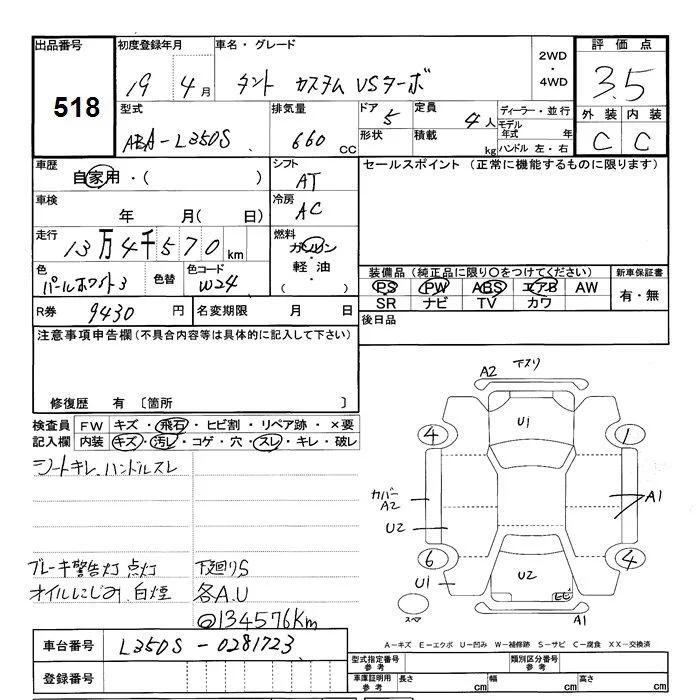 出品番号
518
初度登録年月
19 4月
車名・グレード
タント カスタム VSターボ
2WD
・
4WD
評価点
3.5
外装 内装
C C
型式
ABA-L350S
排気量
660 CC
ドア 5
形状
定員 4人
積載 kg
ディーラー・並行
モデル年式 年
ハンドル 左・右
車歴
自家用・( )
シフト
AT
セールスポイント(正常に機能するものに限ります)
車検
年 月( 日)
冷房
AC
走行
13万4千570km
燃料
ガソリン
・
軽油
・
( )
色
パールホワイト3
色替
色コード
W24
装備品(純正品に限り○をつけてください)
PS PW ABS エアB AW
SR ナビ TV カワ
新車保証書
有・無
R券 9430円
名変期限 月 日
後日品
注意事項申告欄(不具合内容等は具体的に記入して下さい)
修復歴 有 〔箇所 〕
検査員記入欄
FW キズ・飛石・ヒビ割・リペア跡・×要
内装 キズ・汚レ・コゲ・穴・スレ・キレ・破レ
シートキレ ハンドルスレ
ブレーキ警告灯 点灯
オイルにじみ 白煙
下廻りS
各A.U
@134576Km
A2 下スリ
U1
4
1
カバー
A2
U2
A1
6
4
U1
U2
ヒビ
スペア
A1
車台番号 L350S-0281723
登録番号
A-キズ E-エクボ U-凹み W-補修跡 S-サビ C-腐食 XX-交換済
型式指定番号
参考
類別区分番号
参考
車庫証明用
参考
長さ cm
幅 cm
高さ cm